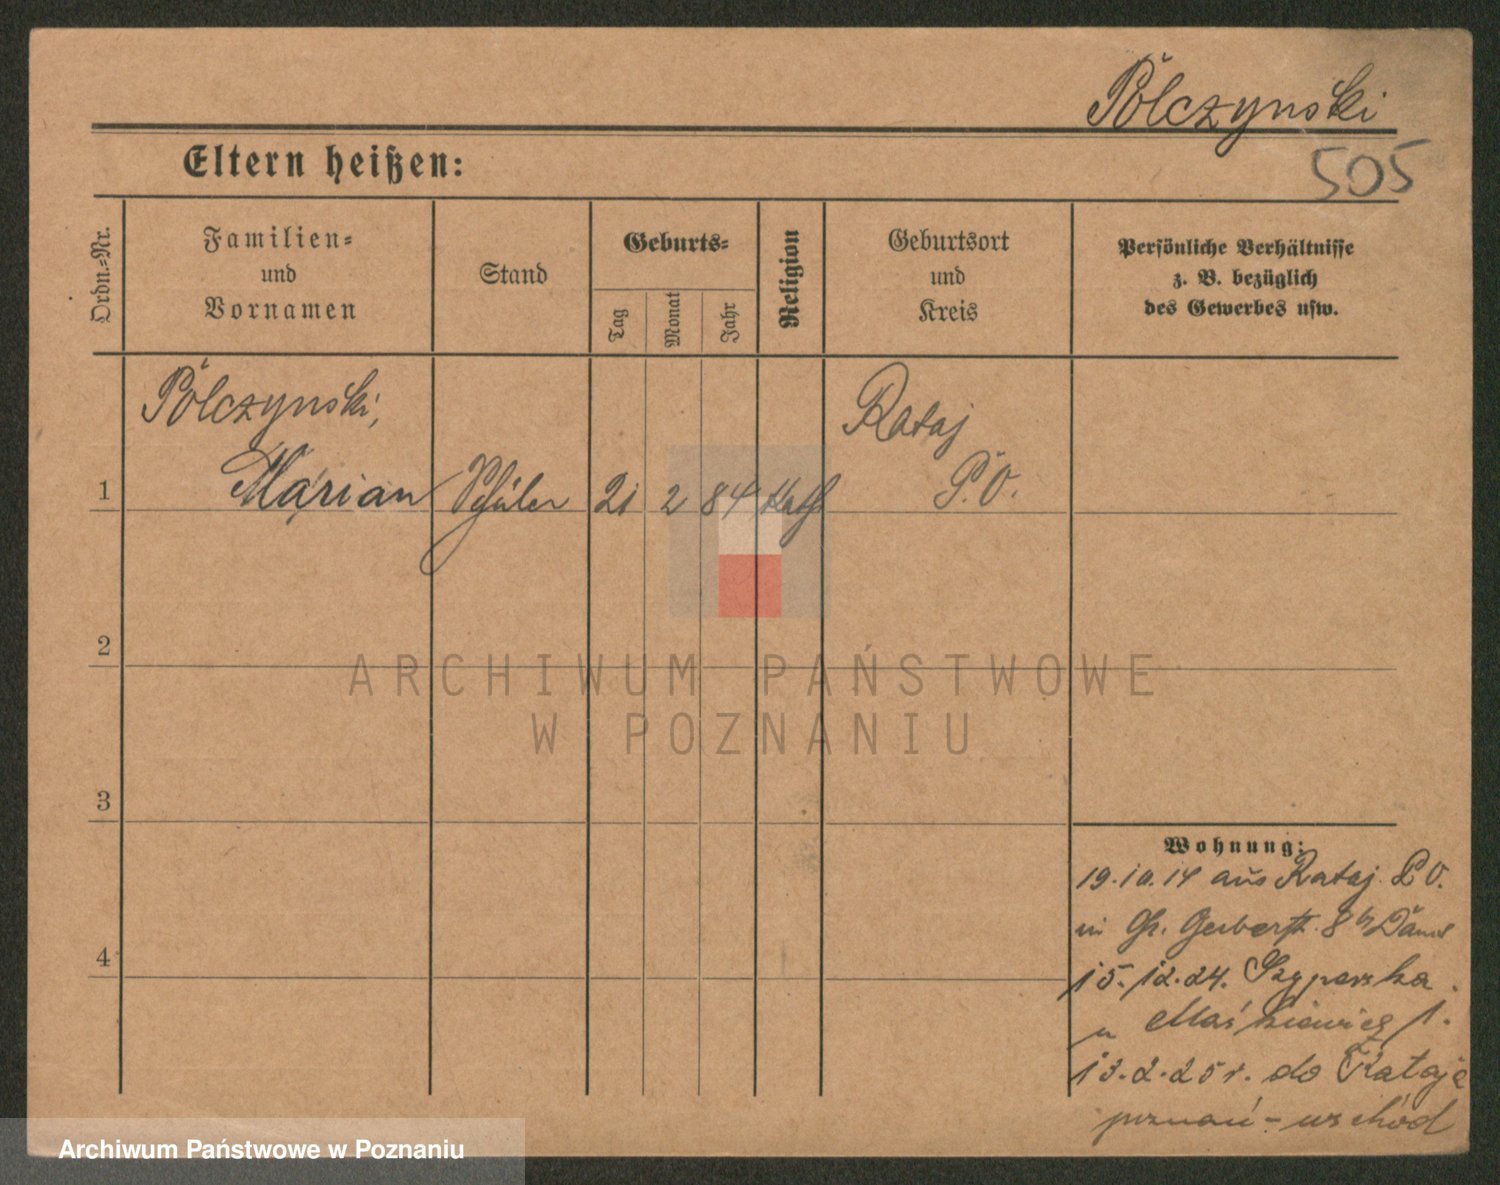 Pólczynski
505
Eltern heißen:
Ordn.-Nr.
Familien-
und
Vornamen
Stand
Geburts-
Tag
Monat
Jahr
Religion
Geburtsort
und
Kreis
Persönliche Verhältnisse
z. B. bezüglich
des Gewerbes usw.
Pólczynski,
Marian
1
Schüler
21
2
84
kath
Rataj
P.O.
2
3
4
Wohnung:
19.10.14 aus Rataj P.O.
Gr. Gerberstr. 8
15.12.24. Szyperska
u Maśkiewicz 1.
13.2.25 r. do Rataje
poznań-wschód
ARCHIWUM PAŃSTWOWE
W POZNANIU
Archiwum Państwowe w Poznaniu